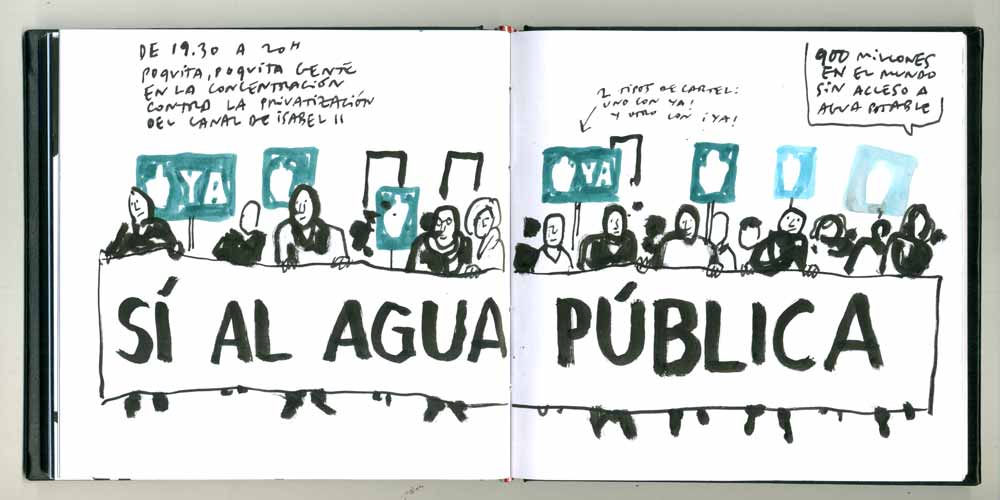 DE 19.30 A 20H
POQUITA, POQUITA GENTE
EN LA CONCENTRACIÓN
CONTRA LA PRIVATIZACIÓN
DEL CANAL DE ISABEL II
2 TIPOS DE CARTEL:
UNO CON YA!
Y OTRO CON ¡YA!
900 MILLONES
EN EL MUNDO
SIN ACCESO A
AGUA POTABLE
YA
YA
SÍ AL AGUA PÚBLICA